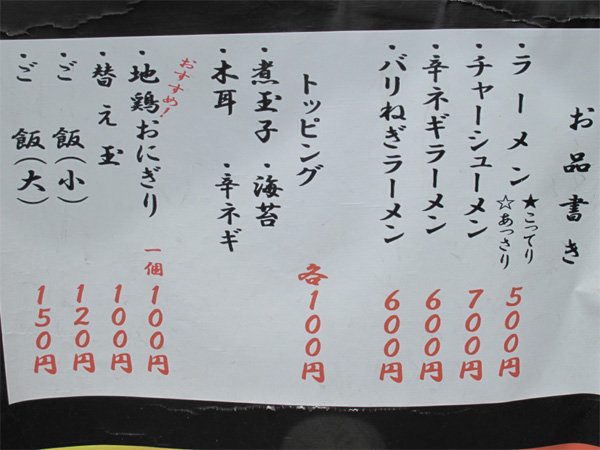 お品書き
・ラーメン ★こってり ☆あっさり 500円
・チャーシューメン 700円
・辛ネギラーメン 600円
・バリねぎラーメン 600円
トッピング 各100円
・煮玉子 ・海苔
・木耳 ・辛ネギ
おすすめ!
・地鶏おにぎり 一個 100円
・替え玉 100円
・ご飯(小) 120円
・ご飯(大) 150円